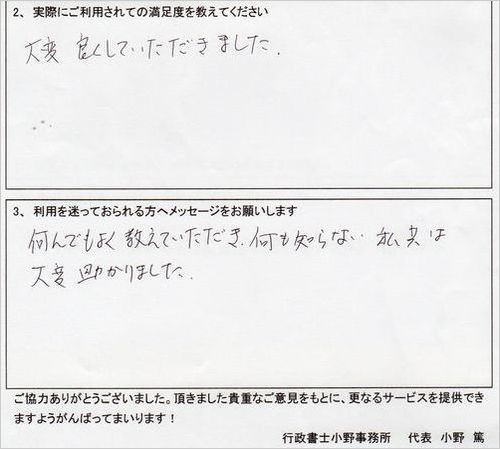 2、実際にご利用されての満足度を教えてください
大変 良くしていただきました.
3、利用を迷っておられる方へメッセージをお願いします
何んでもよく教えていただき、何も知らない 私共は
大変 助かりました.
ご協力ありがとうございました。頂きました貴重なご意見をもとに、更なるサービスを提供でき
ますようがんばってまいります！
行政書士小野事務所 代表 小野 篤